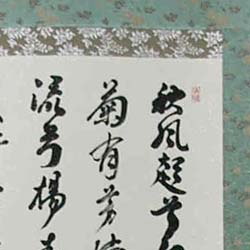 秋風起兮
菊有芳懷
流兮揚素